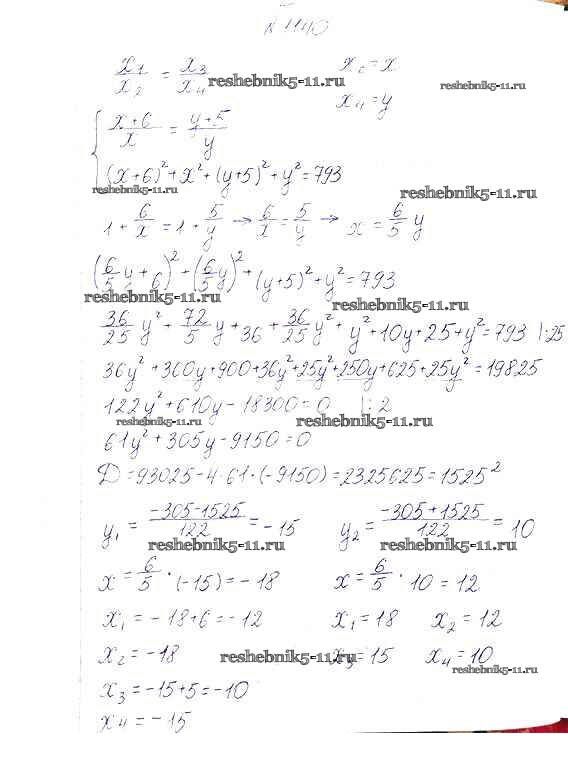 № 1140
x₁/x₂ = x₃/x₄   x₂ = x
reshebnik5-11.ru   reshebnik5-11.ru
x₄ = y
{ (x+6)/x = (y+5)/y
(x+6)² + x² + (y+5)² + y² = 793
reshebnik5-11.ru   reshebnik5-11.ru
1 + 6/x = 1 + 5/y → 6/x = 5/y → x = 6/5 y
(6/5 y + 6)² + (6/5 y)² + (y+5)² + y² = 793
reshebnik5-11.ru   reshebnik5-11.ru
36/25 y² + 72/5 y + 36 + 36/25 y² + y² + 10y + 25 + y² = 793 |:25
36y² + 360y + 900 + 36y² + 25y² + 250y + 625 + 25y² = 19825
122y² + 610y - 18300 = 0 |:2
reshebnik5-11.ru   reshebnik5-11.ru
61y² + 305y - 9150 = 0
D = 93025 - 4·61·(-9150) = 2325625 = 1525²
y₁ = (-305-1525)/122 = -15   y₂ = (-305+1525)/122 = 10
reshebnik5-11.ru   reshebnik5-11.ru
x = 6/5 · (-15) = -18   x = 6/5 · 10 = 12
x₁ = -18+6 = -12   x₁ = 18   x₂ = 12
x₂ = -18   reshebnik5-11.ru   x₃ = 15   x₄ = 10
reshebnik5-11.ru
x₃ = -15+5 = -10
x₄ = -15